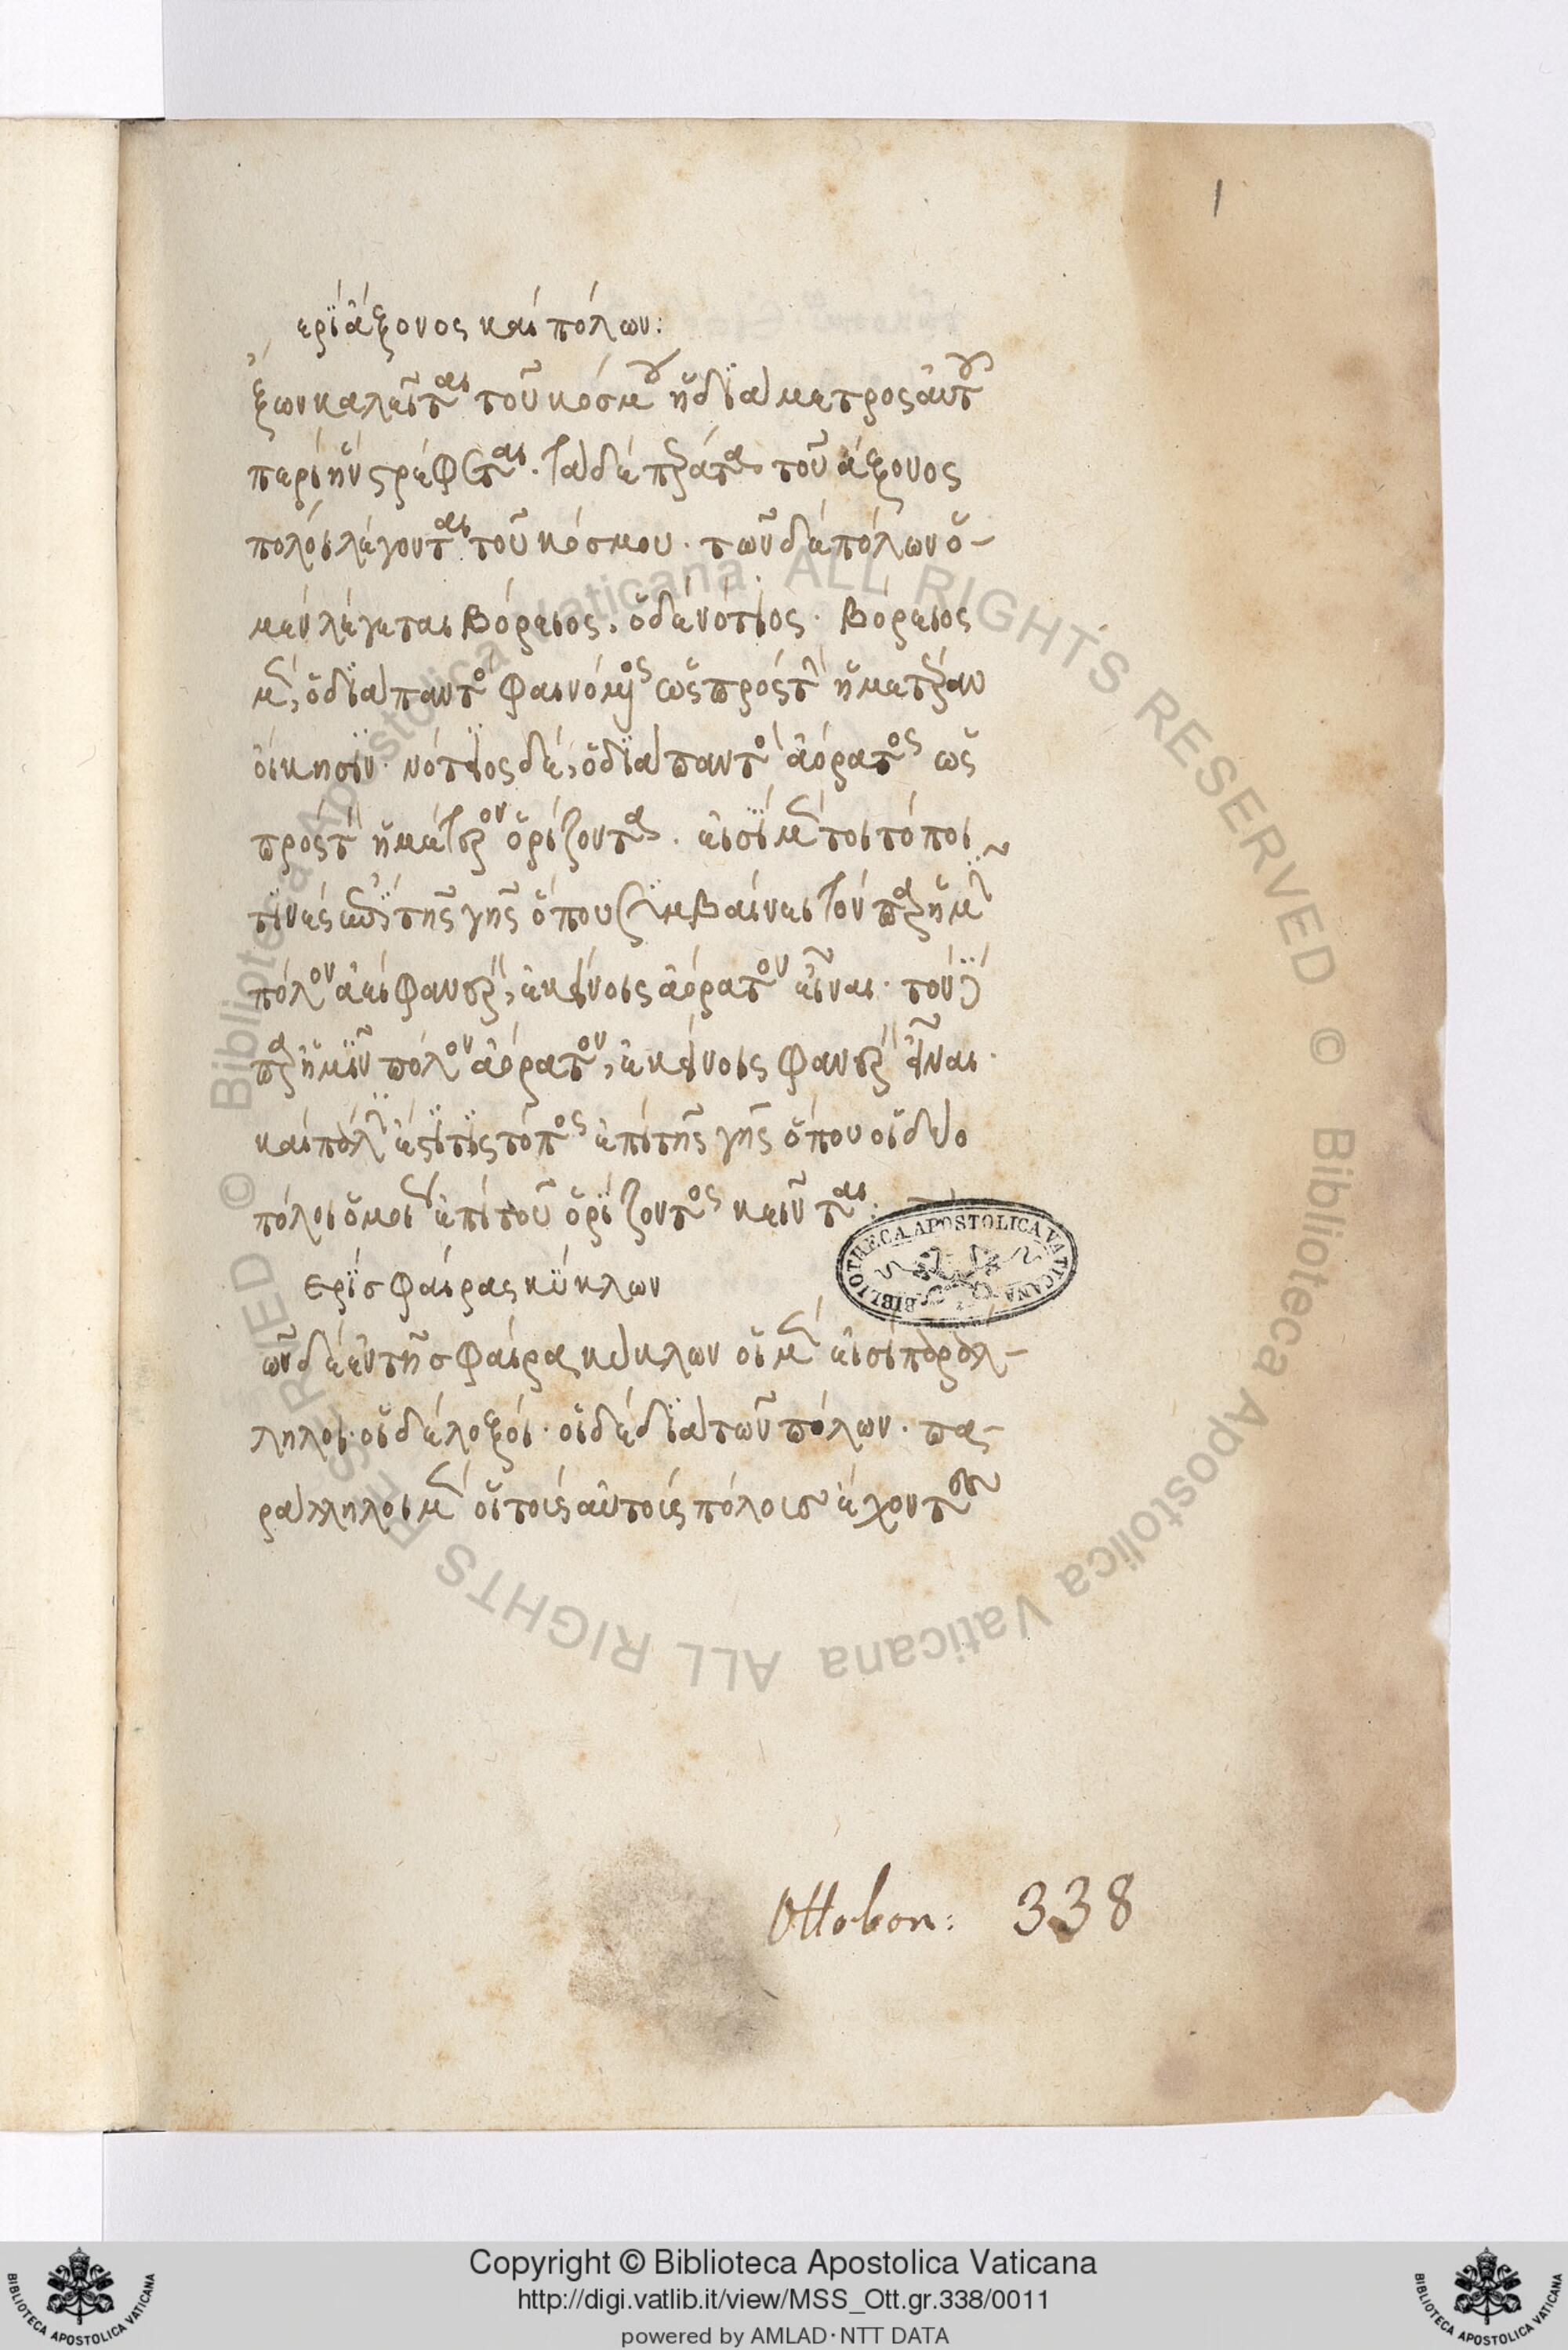 1
ερὶ ἄξονος καὶ πόλων:
ξων καλεῖται τοῦ κόσμου ἡ διάμετρος αὐτοῦ
περὶ ἣν στρέφεται. τὰ δὲ πέρατα τοῦ ἄξονος
πόλοι λέγονται τοῦ κόσμου. τῶν δὲ πόλων ὁ-
μὲν λέγεται βόρειος, ὁ δὲ νότιος. βόρειος
μὲν, ὁ διὰ παντὸς φαινόμενος ὡς πρὸς τὴν ἡμετέραν
οἴκησιν. νότιος δὲ, ὁ διὰ παντὸς ἀόρατος ὡς
πρὸς τὸν ἡμέτερον ὁρίζοντα. εἰσὶ μέντοι τόποι
τινὲς ἐπὶ τῆς γῆς ὅπου συμβαίνει τὸν παρ ἡμῖν
πόλον ἀεὶ φανερὸν, ἐκείνοις ἀόρατον εἶναι. τὸν δὲ
παρ ἡμῖν πόλον ἀόρατον, ἐκείνοις φανερὸν εἶναι.
καὶ πάλιν ἔστι τις τόπος ἐπὶ τῆς γῆς ὅπου οἱ δύο
πόλοι ὁμοίως ἐπὶ τοῦ ὁρίζοντος κεῖνται:
ερὶ σφαίρας κύκλων
ῶν δὲ ἐν τῆ σφαίρα κύκλων οἱ μὲν εἰσὶ παράλ-
ληλοι. οἱ δὲ λοξοί. οἱ δὲ διὰ τῶν πόλων. πα-
ράλληλοι μὲν οἱ τοὶς αὐτοὶς πόλοισ ἔχοντεσ
BIBLIOTHECA APOSTOLICA VATICANA
Ottobon: 338
© Biblioteca Apostolica Vaticana ALL RIGHTS RESERVED © Biblioteca Apostolica Vaticana ALL RIGHTS RESERVED
Copyright © Biblioteca Apostolica Vaticana
http://digi.vatlib.it/view/MSS_Ott.gr.338/0011
powered by AMLAD·NTT DATA
BIBLIOTECA APOSTOLICA VATICANA
BIBLIOTECA APOSTOLICA VATICANA